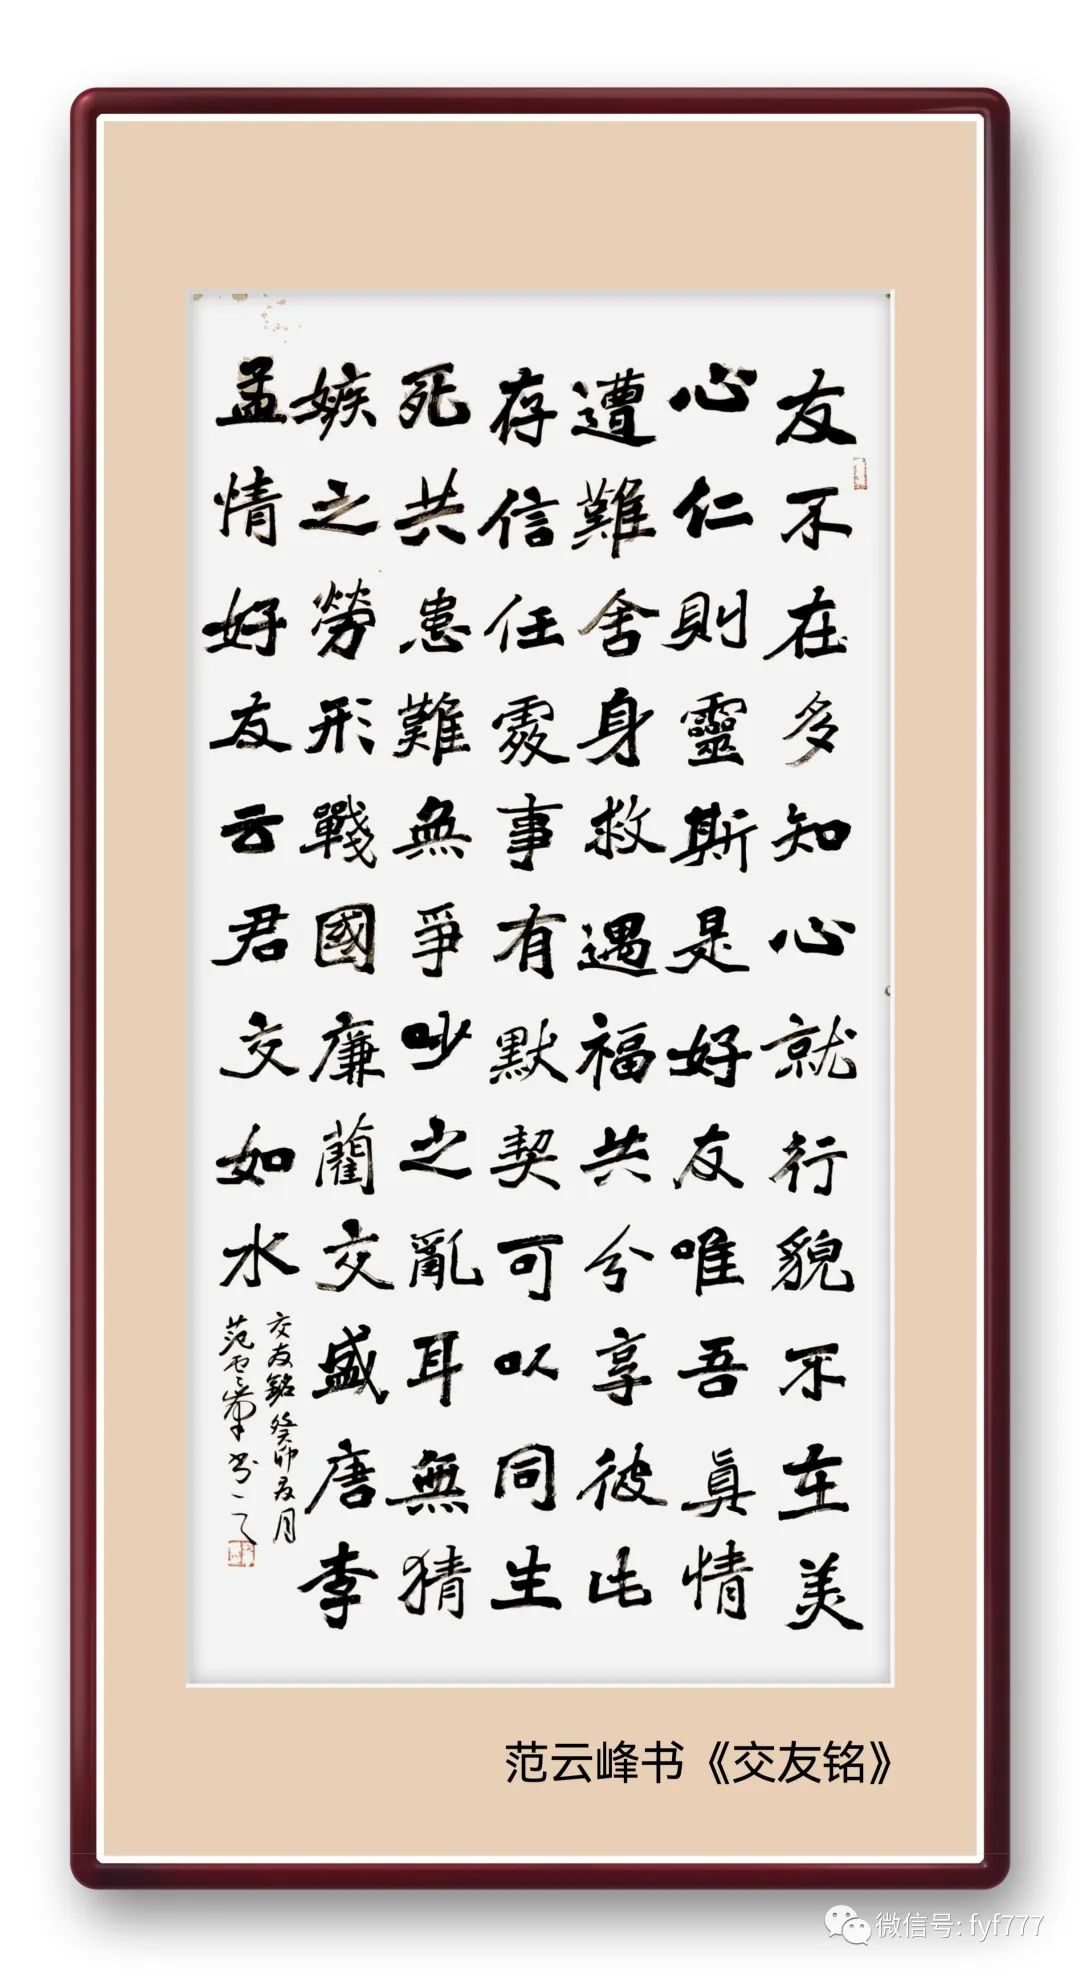 友不在多知心就行貌不在美
心仁則靈斯是好友唯吾真情
遭難舍身救遇福共兮享彼此
存信任處事有默契可以同生
死共患難無爭吵之亂耳無猜
嫉之勞形戰國廉藺交盛唐李
孟情好友云君交如水
交友銘癸卯友月
范云峯书
范云峰书《交友铭》
微信号: fyf777